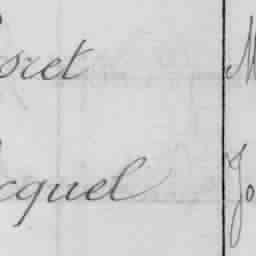 oret M
cquel Jo